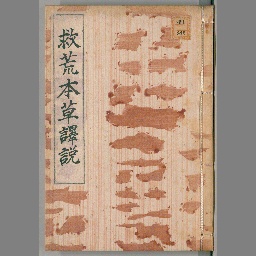 救荒本草譯説